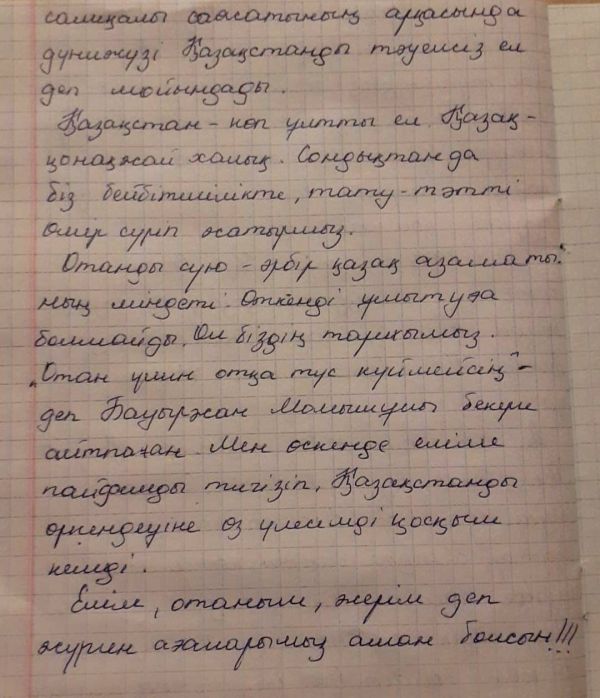 салиқалы саясатының арқасында
дүниежүзі Қазақстанды тәуелсіз ел
деп мойындады.
Қазақстан - көп ұлтты ел. Қазақ -
қонақжай халық. Сондықтан да
біз бейбітшілікте, тату-тәтті
өмір сүріп жатырмыз.
Отанды сүю - әрбір қазақ азаматы-
ның міндеті. Өткенді ұмытуға
болмайды. Ол біздің тарихымыз.
"Отан үшін отқа түс күймейсің" -
деп Бауыржан Момышұлы бекер
айтпаған. Мен өскенде еліме
пайдамды тигізіп, Қазақстанды
өркендеуіне өз үлесімді қосқым
келеді.
Елім, отаным, жерім деп
жүрген ағаларымыз аман болсын!!!